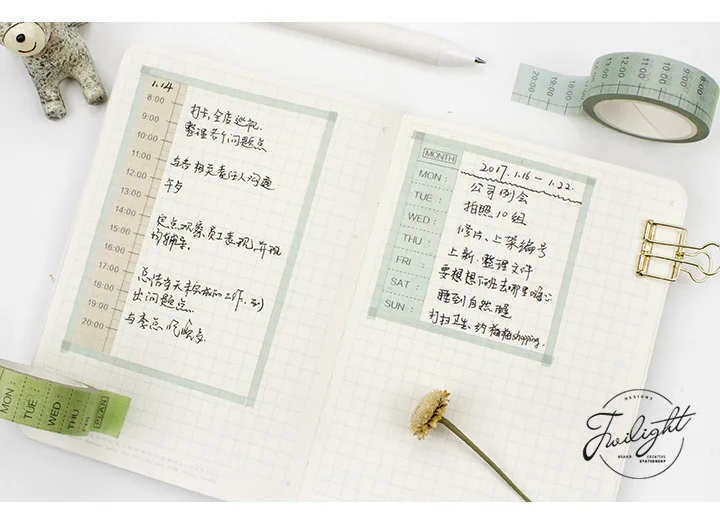 1.14
8:00
9:00
10:00
11:00
12:00
13:00
14:00
15:00
16:00
17:00
18:00
19:00
20:00
打卡,全店巡视.
整理若干问题点
与各相关责任人沟通
午歺
定点观察员工表现,并现
场辅导.
总结当天未完成的工作,列
出问题点.
与李总,吃晚歺
MONTH
2017.1.16 — 1.22.
MON: 公司例会
TUE: 拍照10组
WED: 修片、上架编号
THU: 上新.整理文件
FRI: 要想想下班去哪里嗨心
SAT: 睡到自然醒
SUN: 打扫卫生、约梅梅shopping.
20:00
19:00
18:00
13:00
12:00
11:00
10:00
9:00
8:00
MON:
TUE:
WED:
THU:
PLAN
DESIGNS
Twilight
BRAND CREATIVE
STATIONERY